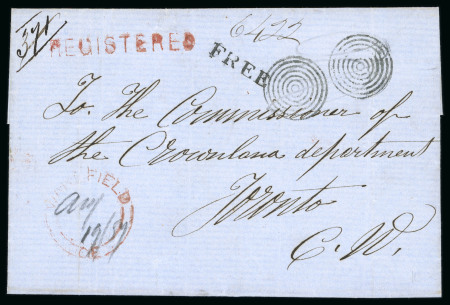 6422
REGISTERED
FREE
To. The Commissioner of
the Crownlana department
Toronto
C. W.
FIELD
Aug
19/57